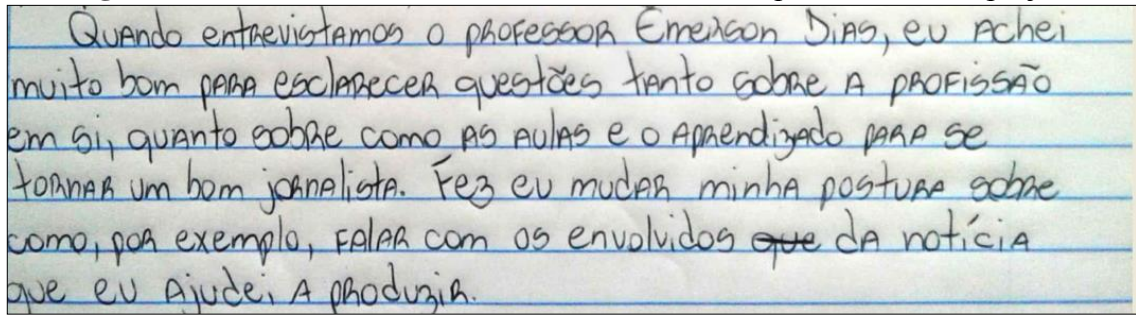 Quando entrevistamos o professor Emerson Dias, eu achei
muito bom para esclarecer questões tanto sobre a profissão
em si, quanto sobre como as aulas e o aprendizado para se
tornar um bom jornalista. Fez eu mudar minha postura sobre
como, por exemplo, falar com os envolvidos que da notícia
que eu ajudei a produzir.